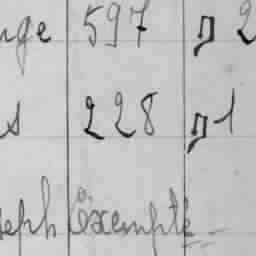 nge 597 д 2
s 228 д 1
seph Exempté